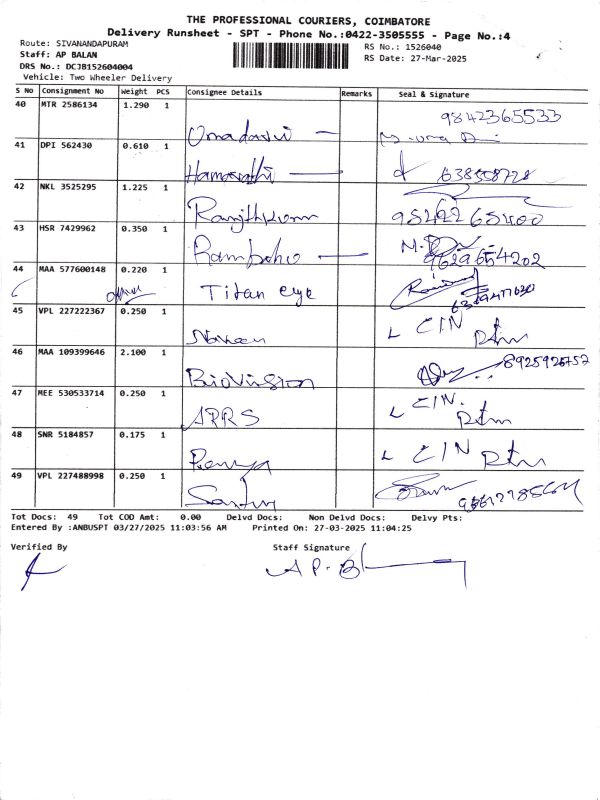 THE PROFESSIONAL COURIERS, COIMBATORE
Delivery Runsheet - SPT - Phone No.:0422-3505555 - Page No.:4
Route: SIVANANDAPURAM
RS No.: 1526040
Staff: AP BALAN
RS Date: 27-Mar-2025
DRS No.: DCJB152604004
Vehicle: Two Wheeler Delivery
S No Consignment No Weight PCS Consignee Details Remarks Seal & Signature
40 MTR 2586134 1.290 1
Umadavi 9842365533
41 DPI 562430 0.610 1
42 NKL 3525295 1.225 1
Ranjithkumar
43 HSR 7429962 0.350 1
9629654202
44 MAA 577600148 0.220 1
Titan eye
45 VPL 227222367 0.250 1
Naveen L CIN Rtn
46 MAA 109399646 2.100 1
BioVision 8925926757
47 MEE 530533714 0.250 1
ARRS L CIN. Rtn
48 SNR 5184857 0.175 1
Ramya L CIN Rtn
49 VPL 227488998 0.250 1
Tot Docs: 49 Tot COD Amt: 0.00 Delvd Docs: Non Delvd Docs: Delvy Pts:
Entered By :ANBUSPT 03/27/2025 11:03:56 AM Printed On: 27-03-2025 11:04:25
Verified By Staff Signature
A P. B